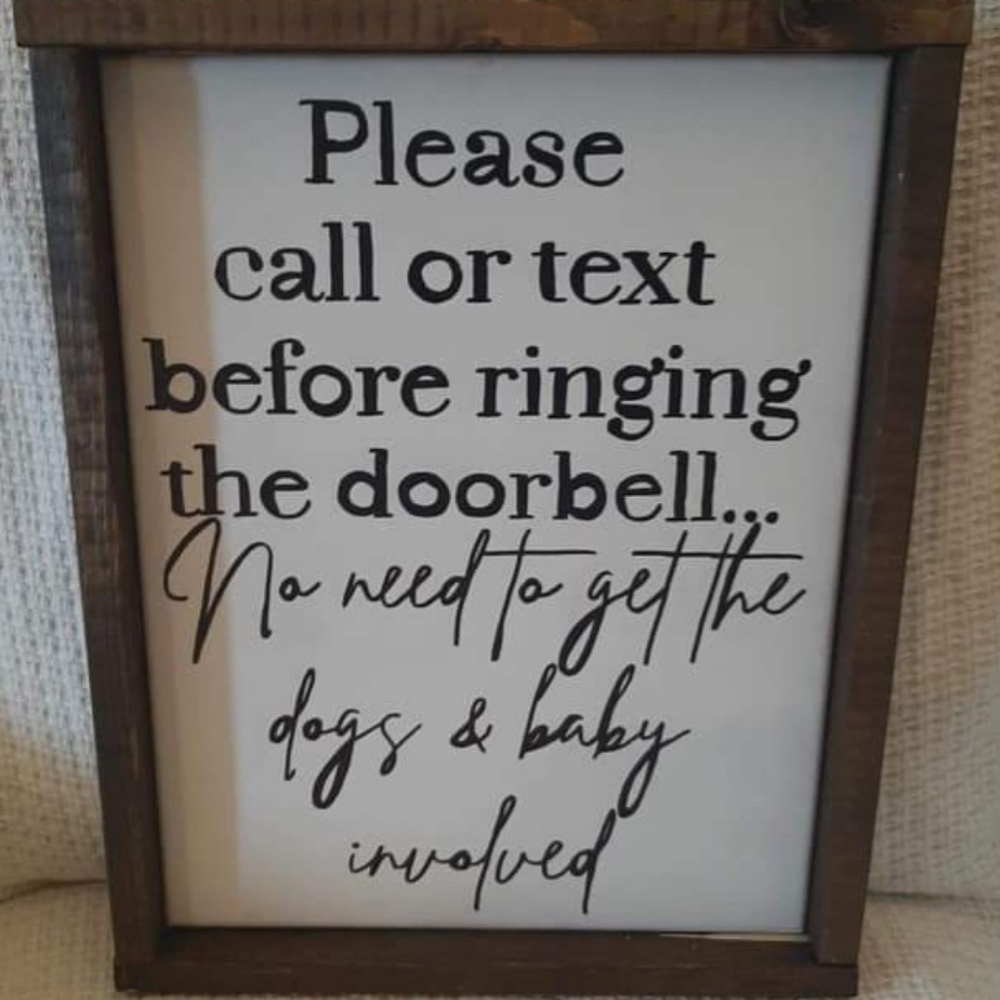 Please
call or text
before ringing
the doorbell...
No need to get the
dogs & baby
involved